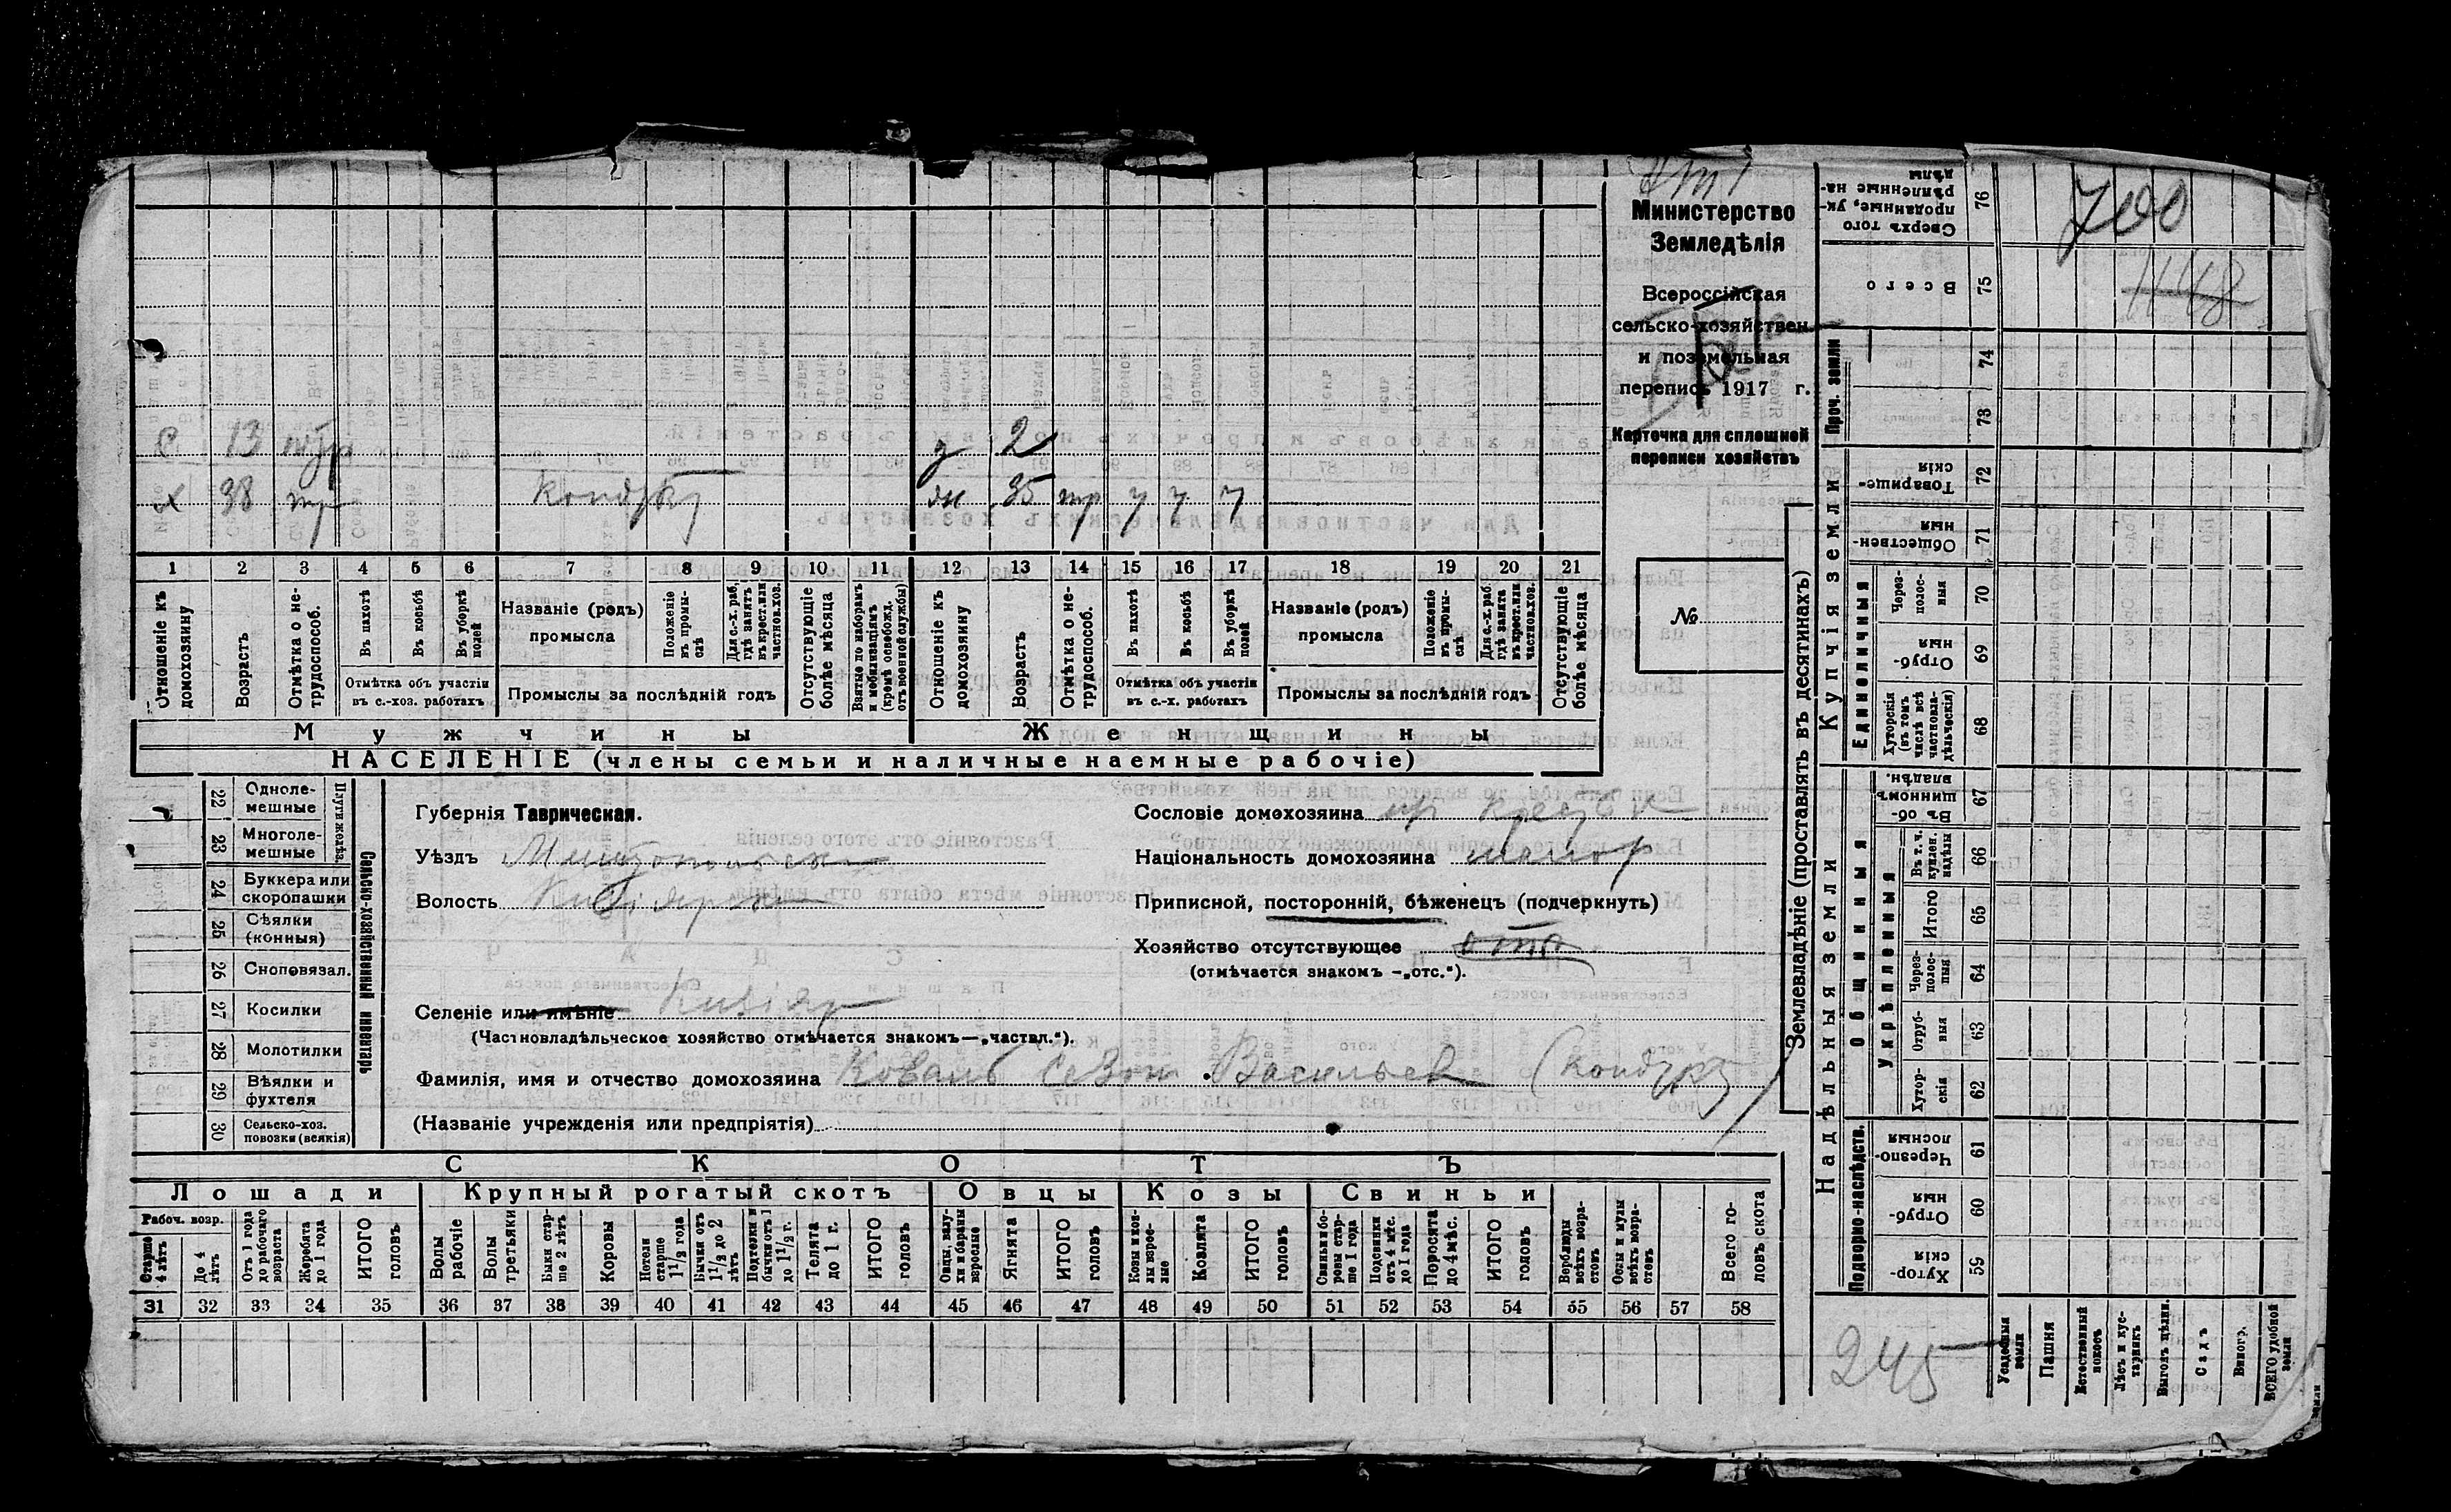 700
1148
Министерство
Земледѣлія
Всероссійская
сельско-хозяйствен.
и поземельная
перепись 1917 г.
Карточка для сплошной
переписи хозяйствъ
№
С 13 д 2
х 38 тр кондук ж 35 тр у у у
1 2 3 4 5 6 7 8 9 10 11 12 13 14 15 16 17 18 19 20 21
Отношеніе къ домохозяину
Возрастъ
Отмѣтка о не-трудоспособ.
Въ пахотѣ
Въ косьбѣ
Въ уборкѣ полей
Отмѣтка объ участіи
въ с.-хоз. работахъ
Названіе (родъ)
промысла
Положеніе въ промы-слѣ
Для с.-х. раб. гдѣ занятъ въ крест. или частновл. хоз.
Промыслы за послѣдній годъ
Отсутствующіе болѣе мѣсяца
Взятые по наборамъ и мобилизаціямъ (кромѣ освобожд. отъ военной службы)
Отношеніе къ домохозяину
Возрастъ
Отмѣтка о не-трудоспособ.
Въ пахотѣ
Въ косьбѣ
Въ уборкѣ полей
Отмѣтка объ участіи
въ с.-х. работахъ
Названіе (родъ)
промысла
Положеніе въ промы-слѣ
Для с.-х. раб. гдѣ занята въ крест. или частнов. хоз.
Промыслы за послѣдній годъ
Отсутствующіе болѣе мѣсяца
Мужчины Женщины
НАСЕЛЕНІЕ (члены семьи и наличные наемные рабочіе)
22 Однолемешные
23 Многолемешные
Плуги желѣз.
24 Буккера или скоропашки
25 Сѣялки (конныя)
26 Сноповязал.
27 Косилки
28 Молотилки
29 Вѣялки и фухтеля
30 Сельско-хоз. повозки (всякія)
Сельско-хозяйственный инвентарь
Губернія Таврическая.
Уѣздъ Мелитопольск
Волость Кизіярск
Сословіе домохозяина кр
Національность домохозяина малор
Приписной, посторонній, бѣженецъ (подчеркнуть)
Хозяйство отсутствующее отс
(отмѣчается знакомъ —„отс.“).
Селеніе или имѣніе Кизіяр
(Частновладѣльческое хозяйство отмѣчается знакомъ—„частвл.“).
Фамилія, имя и отчество домохозяина Коваль Васильев (кондук)
(Названіе учрежденія или предпріятія)
СКОТЪ
Лошади Крупный рогатый скотъ Овцы Козы Свиньи
Рабоч. возр.
Старше 4 лѣтъ
До 4 лѣтъ
Отъ 1 года до рабочаго возраста
Жеребята до 1 года
ИТОГО головъ
Волы рабочіе
Волы третьяки
Быки старше 2 лѣтъ
Коровы
Нетели старше 1 1/2 года
Бычки отъ 1 1/2 до 2 лѣтъ
Подтелки и бычки отъ 1 до 1 1/2 г.
Телята до 1 г.
ИТОГО головъ
Овцы, валухи и бараны взрослые
Ягнята
ИТОГО головъ
Козы и козлы взрослые
Козлята
ИТОГО головъ
Свиньи и боровы старше 1 года
Подсвинки отъ 4 мѣс. до 1 года
Поросята до 4 мѣс.
ИТОГО головъ
Верблюды всѣхъ возрастовъ
Ослы и мулы всѣхъ возрастовъ
Всего головъ скота
31 32 33 34 35 36 37 38 39 40 41 42 43 44 45 46 47 48 49 50 51 52 53 54 55 56 57 58
Землевладѣніе (проставлять въ десятинахъ)
Надѣльныя земли
Купчія земли
Проч. земли
Подворно-наслѣдств.
Общинныя
Укрѣпленныя
Единоличныя
76 Сверхъ того проданные, укрѣпленные надѣлы
75 Всего
74
73
72 Товарищескія
71 Общественныя
70 Черезполосныя
69 Отрубныя
68 Хуторскія (въ томъ числѣ всѣ частновладѣльческія)
67 Въ общинномъ владѣн.
66 Въ т. ч. куплен. надѣлы
65 Итого
64 Черезполосныя
63 Отрубныя
62 Хуторскія
61 Черезполосныя
60 Отрубныя
59 Хуторскія
245
Усадебныя земли
Пашня
Естественный покосъ
Лѣсъ и кустарникъ
Выгонъ цѣлин.
Садъ
Виногр.
ВСЕГО удобной земли